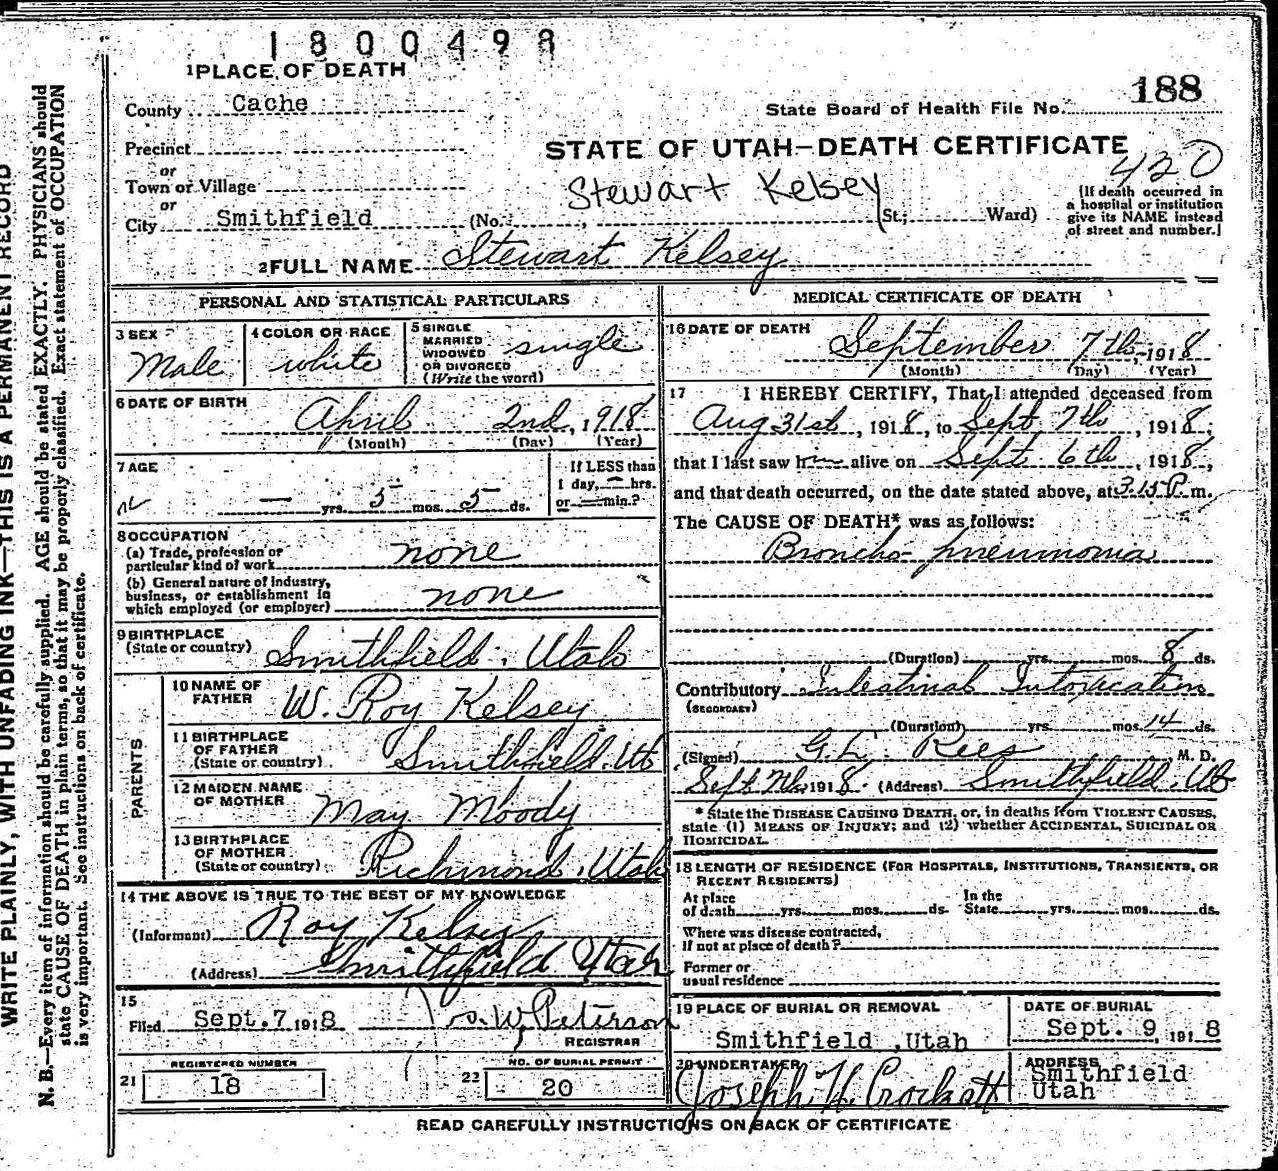 1800498
1 PLACE OF DEATH
188
County Cache
State Board of Health File No.
Precinct
STATE OF UTAH—DEATH CERTIFICATE
420
or
Town or Village
Stewart Kelsey
or
City Smithfield (No. , (St.; Ward)
(If death occurred in
a hospital or institution
give its NAME instead
of street and number.)
2 FULL NAME Stewart Kelsey
PERSONAL AND STATISTICAL PARTICULARS
3 SEX
Male
4 COLOR OR RACE
white
5 SINGLE
MARRIED
WIDOWED
OR DIVORCED
(Write the word)
single
6 DATE OF BIRTH
April 2nd, 1918
(Month) (Day) (Year)
7 AGE
— yrs. 5 mos. 5 ds.
If LESS than
1 day, — hrs.
or — min.?
8 OCCUPATION
(a) Trade, profession or
particular kind of work none
(b) General nature of industry,
business, or establishment in
which employed (or employer) none
9 BIRTHPLACE
(State or country) Smithfield, Utah
PARENTS
10 NAME OF
FATHER W. Roy Kelsey
11 BIRTHPLACE
OF FATHER
(State or country) Smithfield, Ut
12 MAIDEN NAME
OF MOTHER May Moody
13 BIRTHPLACE
OF MOTHER
(State or country) Richmond, Utah
14 THE ABOVE IS TRUE TO THE BEST OF MY KNOWLEDGE
(Informant) Roy Kelsey
(Address) Smithfield Utah
15
Filed Sept. 7 1918 W. Peterson
REGISTRAR
REGISTERED NUMBER
21 18
NO. OF BURIAL PERMIT
22 20
MEDICAL CERTIFICATE OF DEATH
16 DATE OF DEATH
September 7th, 1918
(Month) (Day) (Year)
17 I HEREBY CERTIFY, That I attended deceased from
Aug 31st, 1918, to Sept 7th, 1918,
that I last saw h alive on Sept 6th, 1918,
and that death occurred, on the date stated above, at 3.15 P. m.
The CAUSE OF DEATH* was as follows:
Broncho-pneumonia
(Duration) yrs. mos. 8 ds.
Contributory Intestinal Intoxication
(SECONDARY)
(Duration) yrs. mos. 14 ds.
(Signed) G.L. Rees M. D.
Sept 7th, 1918. (Address) Smithfield, Ut
* State the DISEASE CAUSING DEATH, or, in deaths from VIOLENT CAUSES,
state (1) MEANS OF INJURY; and (2) whether ACCIDENTAL, SUICIDAL OR
HOMICIDAL.
18 LENGTH OF RESIDENCE (FOR HOSPITALS, INSTITUTIONS, TRANSIENTS, OR
RECENT RESIDENTS)
At place
of death yrs. mos. ds.
In the
State yrs. mos. ds.
Where was disease contracted,
if not at place of death?
Former or
usual residence
19 PLACE OF BURIAL OR REMOVAL
Smithfield, Utah
DATE OF BURIAL
Sept. 9, 1918
20 UNDERTAKER
Joseph H Crockett
ADDRESS
Smithfield
Utah
READ CAREFULLY INSTRUCTIONS ON BACK OF CERTIFICATE
WRITE PLAINLY, WITH UNFADING INK—THIS IS A PERMANENT RECORD
N. B.—Every item of information should be carefully supplied. AGE should be stated EXACTLY. PHYSICIANS should
state CAUSE OF DEATH in plain terms, so that it may be properly classified. Exact statement of OCCUPATION
is very important. See instructions on back of certificate.